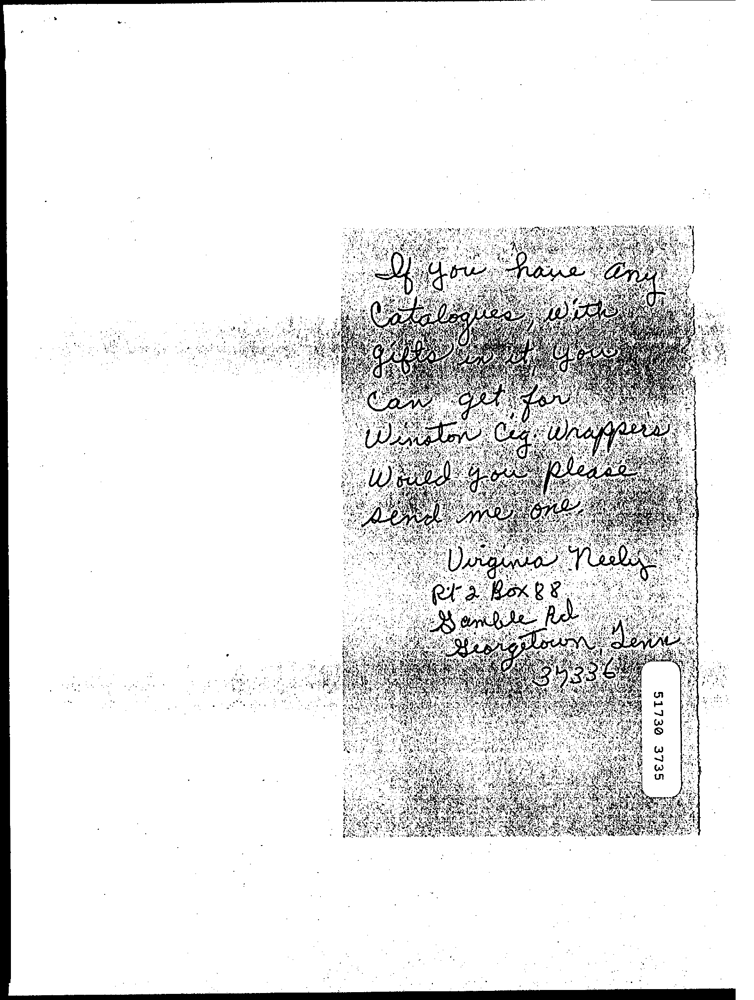 If you have any
Catalogues, with
gifts in it, you
can get for
Winston Cig. Wrappers
Would you please
send me one.
Virginia Neely
Rt 2 Box 88
Gamble Rd
Georgetown Tenn
37336
51730 3735